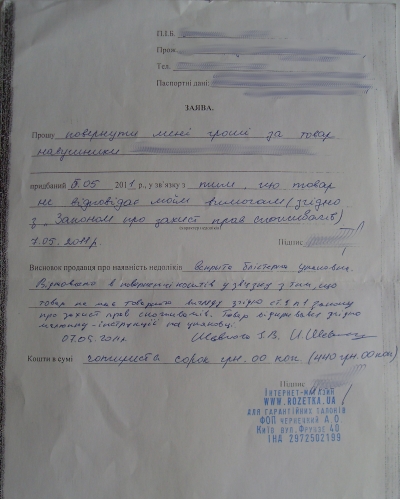 П.І.Б.
Прож.
Тел.
Паспортні дані:
ЗАЯВА.
Прошу повернути мені гроші за товар
навушники
придбаний 5.05 2011 р., у зв'язку з тим, що товар
не відповідає моїм вимогам (згідно
з "Законом про захист прав споживачів)
7.05.2011р. Підпис
Висновок продавця про наявність недоліків Вскрита блістерна упаковка.
Відмовлено в поверненні коштів у зв'язку з тим, що
товар не має товарного вигляду згідно ст.9 п.1 закону
про захист прав споживачів. Товар відкривався згідно
малюнку-інструкції на упаковці.
07.05.2011р.
Кошти в сумі чотириста сорок грн. 00 коп (440 грн. 00 коп)
Підпис
ІНТЕРНЕТ-МАГАЗИН
WWW.ROZETKA.UA
ДЛЯ ГАРАНТІЙНИХ ТАЛОНІВ
ФОП ЧЕРНЕЦКИЙ А.О.
КИЇВ ВУЛ.ФРУНЗЕ 40
ІНА 2972502199